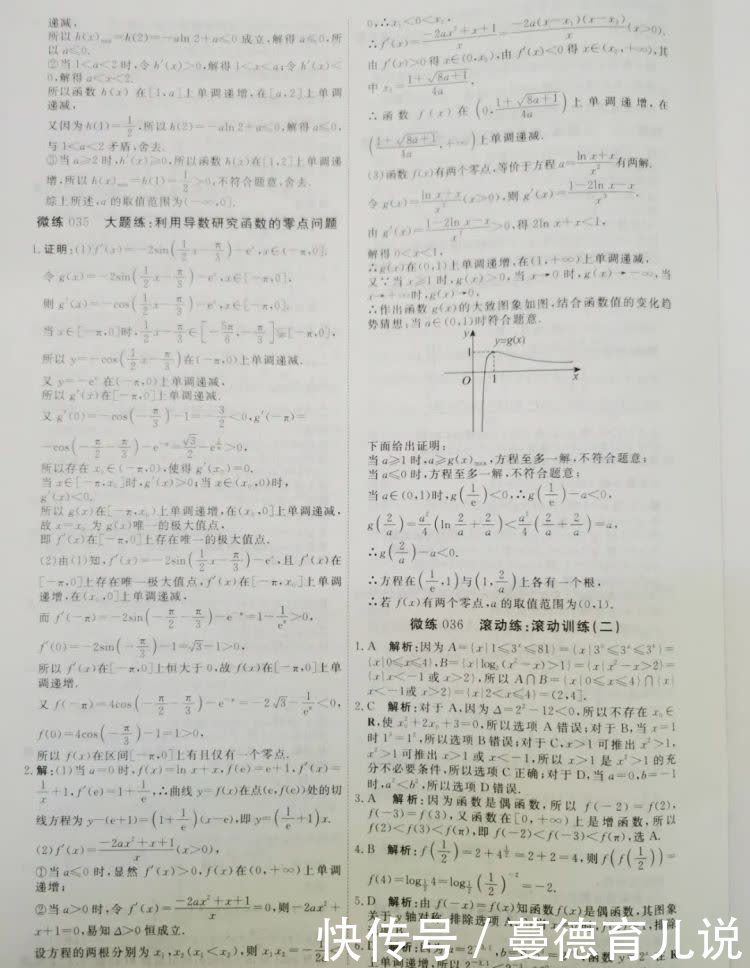 递减,
所以 h(x)min=h(2)=-aln 2+a≤0 成立,解得 a≤0,所
以 a≤0.
②当 1<a<2 时,令 h′(x)>0,解得 1<x<a;令 h′(x)<
0,解得 a<x<2.
所以函数 h(x) 在[1,a]上单调递增,在[a,2]上单调
递减,
又因为 h(1)=1/2,所以 h(2)=-aln 2+a≤0,解得 a≤0,
与 1<a<2 矛盾,舍去.
③当 a≥2 时,h′(x)≥0,所以函数 h(x)在[1,2]上单调递
增,所以 h(x)min=h(1)=1/2>0,不符合题意,舍去.
综上所述,a 的取值范围为(-∞,0].
微练 035 大题练:利用导数研究函数的零点问题
1.证明:(1)f′(x)=-2sin(1/2x-π/3)-eˣ,x∈[-π,0].
令 g(x)=-2sin(1/2x-π/3)-eˣ,x∈[-π,0],
则 g′(x)=-cos(1/2x-π/3)-eˣ,x∈[-π,0],
当 x∈[-π,0]时,1/2x-π/3∈[-5π/6,-π/3]
所以 y=-cos(1/2x-π/3)在(-π,0)上单调递减,
又 y=-eˣ 在(-π,0)上单调递减,
所以 g′(x)在[-π,0]上单调递减.
又 g′(0)=-cos(-π/3)-1=-3/2<0,g′(-π)=
-cos(-π/2-π/3)-e^-π=√3/2-1/e^π>0,
所以存在 x₀∈(-π,0),使得 g′(x₀)=0.
当 x∈[-π,x₀]时,g′(x)>0;当 x∈(x₀,0)时,
g′(x)<0.
所以 g(x)在[-π,x₀)上单调递增,在(x₀,0]上单调递减,
故 x=x₀ 为 g(x)唯一的极大值点,
即 f′(x)在[-π,0]上存在唯一的极大值点.
(2)由(1)知,f′(x)=-2sin(1/2x-π/3)-eˣ,且 f′(x)在
[-π,0]上存在唯一极大值点,f′(x)在[-π,x₀]上单调
递增,在(x₀,0]上单调递减,
而 f′(-π)=-2sin(-π/2-π/3)-e^-π=1-1/e^π>0,
f′(0)=-2sin(-π/3)-1=√3-1>0,
所以 f′(x)在[-π,0]上恒大于 0,故 f(x)在[-π,0]上单
调递增.
又 f(-π)=4cos(-π/2-π/3)-e^-π=-2√3-1/e^π<0,
f(0)=4cos(-π/3)-1=1>0,
所以 f(x)在区间[-π,0]上有且仅有一个零点.
2.解:(1)当 a=0 时,f(x)=ln x+x,f(e)=e+1,f′(x)=
1/x+1,f′(e)=1+1/e,∴曲线 y=f(x)在点(e,f(e))处的切
线方程为 y-(e+1)=(1+1/e)(x-e),即 y=(1/e+1)x.
(2)f′(x)=(-2ax²+x+1)/x(x>0),
①当 a≤0 时,显然 f′(x)>0,f(x)在(0,+∞)上单调
递增;
②当 a>0 时,令 f′(x)=(-2ax²+x+1)/x=0,则-2ax²+
x+1=0,易知 Δ>0 恒成立.
设方程的两根分别为 x₁,x₂(x₁<x₂),则 x₁x₂=-
0,∴x₁<0<x₂,
∴f′(x)=(-2ax²+x+1)/x=-2a(x-x₁)(x-x₂)/x(x>0).
由 f′(x)>0 得 x∈(0,x₂),由 f′(x)<0 得 x∈(x₂,+∞),其
中 x₂=(1+√8a+1)/4a,
∴函数 f(x)在(0,(1+√8a+1)/4a)上单调递增,在
((1+√8a+1)/4a,+∞)上单调递减.
(3)函数 f(x)有两个零点,等价于方程 a=(ln x+x)/x²有两解.
令 g(x)=(ln x+x)/x²(x>0),则 g′(x)=(1-2ln x-x)/x³.
由 g′(x)=(1-2ln x-x)/x³>0,得 2ln x+x<1,
解得 0<x<1,
∴g(x)在(0,1)上单调递增,在(1,+∞)上单调递减.
又∵当 x≥1 时,g(x)>0,当 x→0 时,g(x)→-∞,当
x→+∞时,g(x)→0,
∴作出函数 g(x)的大致图象如图,结合函数值的变化趋
势猜想:当 a∈(0,1)时符合题意.
y
1
y=g(x)
O 1 x
下面给出证明:
当 a≥1 时,a≥g(x)max,方程至多一解,不符合题意;
当 a≤0 时,方程至多一解,不符合题意;
当 a∈(0,1)时,g(1/e)<0,∴g(1/e)-a<0,
g(2/a)=a²/4(ln 2/a+2/a)<a²/4(2/a+2/a)=a,
∴g(2/a)-a<0.
∴方程在(1/e,1)与(1,2/a)上各有一个根,
∴若 f(x)有两个零点,a 的取值范围为(0,1).
微练 036 滚动练:滚动训练(二)
1.A 解析:因为 A={x|1≤3ˣ≤81}={x|3⁰≤3ˣ≤3⁴}=
{x|0≤x≤4},B={x|log₂(x²-x)>1}={x|x²-x>2}=
{x|x<-1 或 x>2},所以 A∩B={x|0≤x≤4}∩{x|
x<-1 或 x>2}={x|2<x≤4}=(2,4].
2.C 解析:对于 A,因为 Δ=2²-12<0,所以不存在 x₀∈
R,使 x₀²+2x₀+3=0,所以选项 A 错误;对于 B,当 x=1
时 1³=1²,所以选项 B 错误;对于 C,x>1 可推出 x²>1,
x²>1 可推出 x>1 或 x<-1,所以 x>1 是 x²>1 的充
分不必要条件,所以选项 C 正确;对于 D,当 a=0,b=-1
时,a²<b²,所以选项 D 错误.
3.A 解析:因为函数是偶函数,所以 f(-2)=f(2),
f(-3)=f(3),又函数在[0,+∞)上是增函数,所以
f(2)<f(3)<f(π),即 f(-2)<f(-3)<f(π),选 A.
4.B 解析:f(1/2)=2+4^1/2=2+2=4,则 f(f(1/2))=
f(4)=log1/2 4=log1/2(1/2)^-2=-2.
5.D 解析:由 f(-x)=f(x)知函数 f(x)是偶函数,其图象
关于 y 轴对称,排除选项
快传号 / 蔓德育儿说